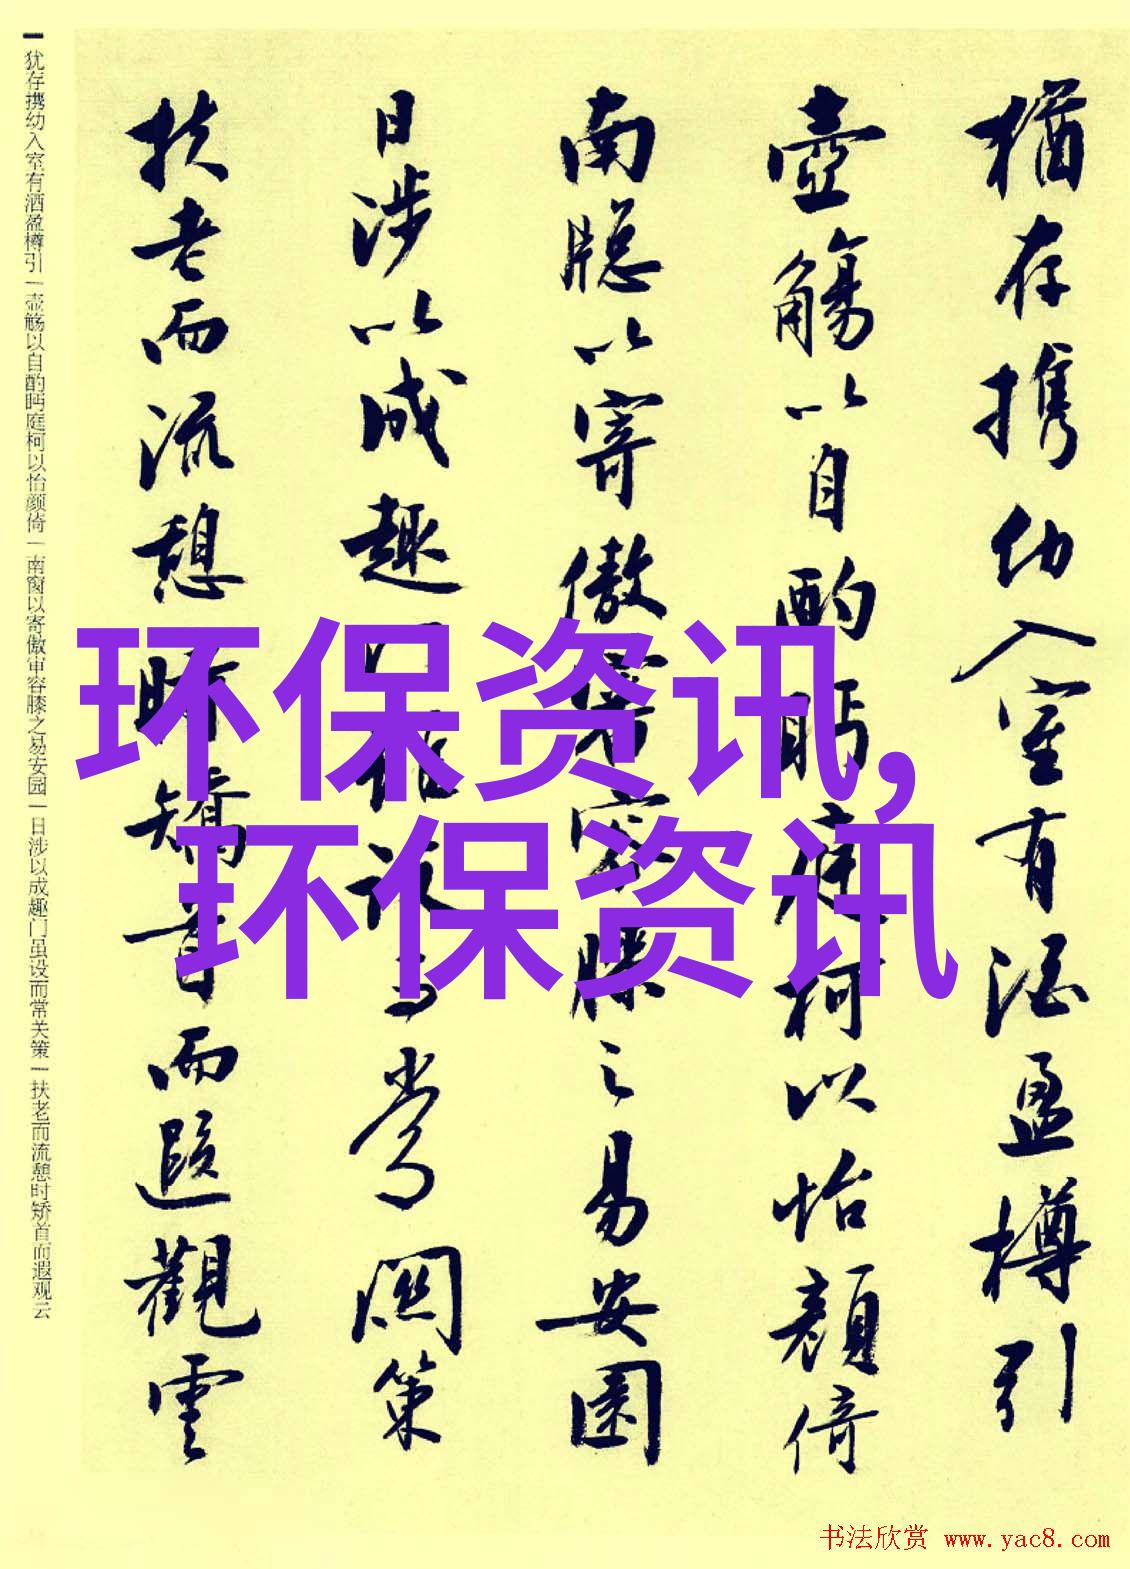 猶存携幼入室有酒盈樽引
壺觴以自酌眄庭柯以怡顔倚
南牕以寄傲審容膝之易安園
日涉以成趣門雖設而常關策
扶老而流憩時矯首而遐觀雲
犹存携幼入室有洒盈樽引|壶觞以自酌眄庭柯以怡颜倚|南窗以寄傲审容膝之易安园|日涉以成趣门虽设而常关策|扶老而流憩时矫首而遐观云
环保资讯,
环保资讯
书法欣赏 www.yac8.com